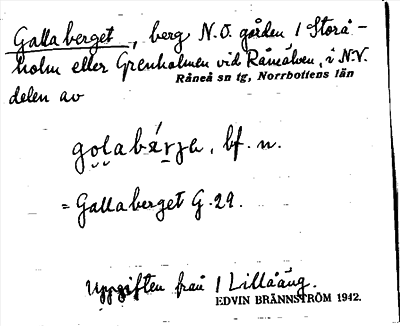 Gallaberget, berg N.O. gården 1 Storå-
holm eller Grenholmen vid Råneälven, i N.V.
Råneå sn tg, Norrbottens län
delen av
gọḷabä́rja, bf. n.
= Gallaberget G.29.
Uppgiften från 1 Lillåäng.
EDVIN BRÄNNSTRÖM 1942.